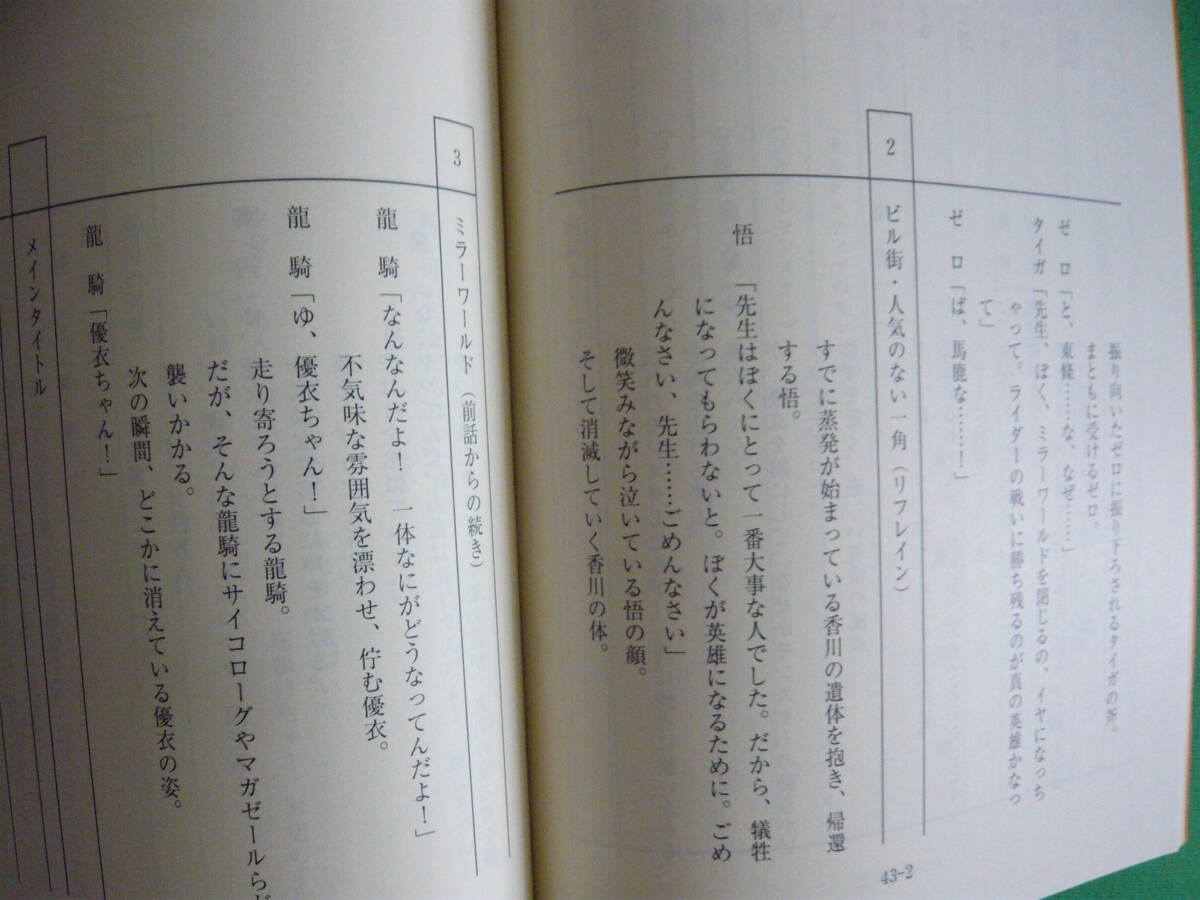 振り向いたゼロに振り下ろされるタイガの斧。
まともに受けるゼロ。
ゼロ「と、東條……な、なぜ……」
タイガ「先生、ぼく、ミラーワールドを閉じるの、イヤになっち
ゃって。ライダーの戦いに勝ち残るのが真の英雄かなっ
て」
ゼロ「ば、馬鹿な………!」
2 ビル街・人気のない一角(リフレイン)
すでに蒸発が始まっている香川の遺体を抱き、帰還
する悟。
悟「先生はぼくにとって一番大事な人でした。だから、犠牲
になってもらわないと。ぼくが英雄になるために。ごめ
んなさい、先生……ごめんなさい」
微笑みながら泣いている悟の顔。
そして消滅していく香川の体。
43-2
3 ミラーワールド(前話からの続き)
龍騎「なんなんだよ! 一体なにがどうなってんだよ!」
不気味な雰囲気を漂わせ、佇む優衣。
龍騎「ゆ、優衣ちゃん!」
走り寄ろうとする龍騎。
だが、そんな龍騎にサイコローグやマガゼールらが
襲いかかる。
次の瞬間、どこかに消えている優衣の姿。
龍騎「優衣ちゃん!」
メインタイトル